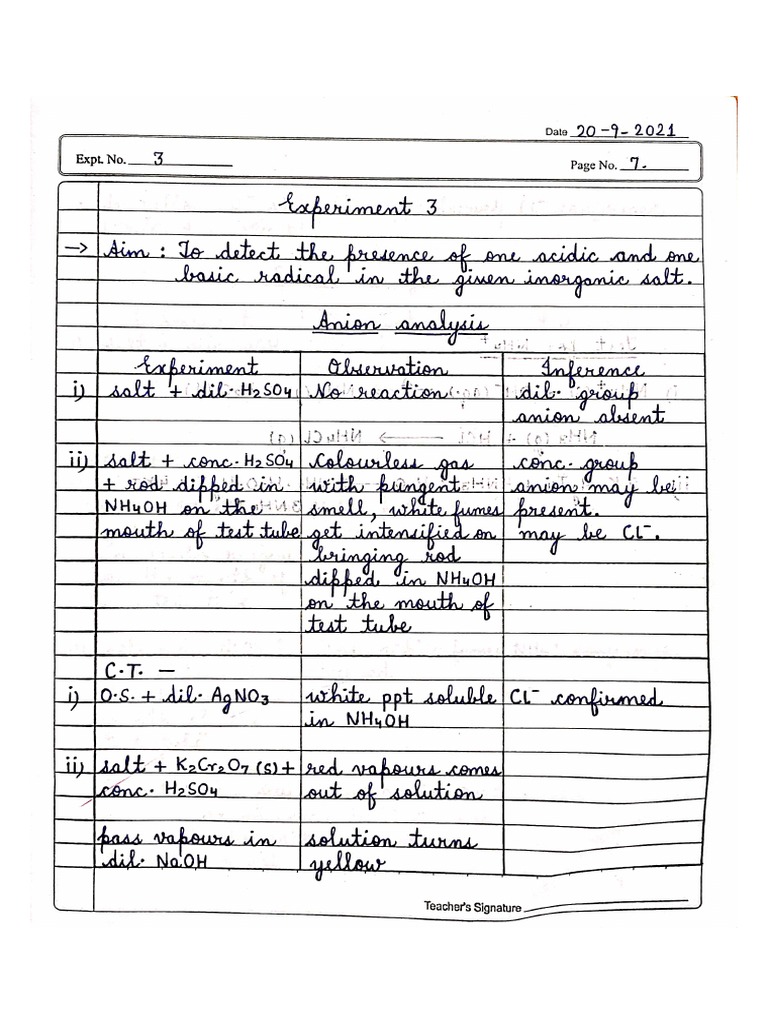 Date 20-9-2021
Expt. No. 3
Page No. 7.
Experiment 3
→ Aim : To detect the presence of one acidic and one
basic radical in the given inorganic salt.
Anion analysis
Experiment Observation Inference
i) salt + dil. H2SO4 No reaction dil. group
anion absent
ii) salt + conc. H2SO4 Colourless gas conc. group
+ rod dipped in with pungent anion may be
NH4OH on the smell, white fumes present.
mouth of test tube get intensified on may be Cl⁻.
bringing rod
dipped in NH4OH
on the mouth of
test tube
C.T. —
i) O.S. + dil. AgNO3 white ppt soluble Cl⁻ confirmed
in NH4OH
ii) salt + K2Cr2O7 (s) + red vapours comes
conc. H2SO4 out of solution
pass vapours in solution turns
dil. NaOH yellow
Teacher's Signature